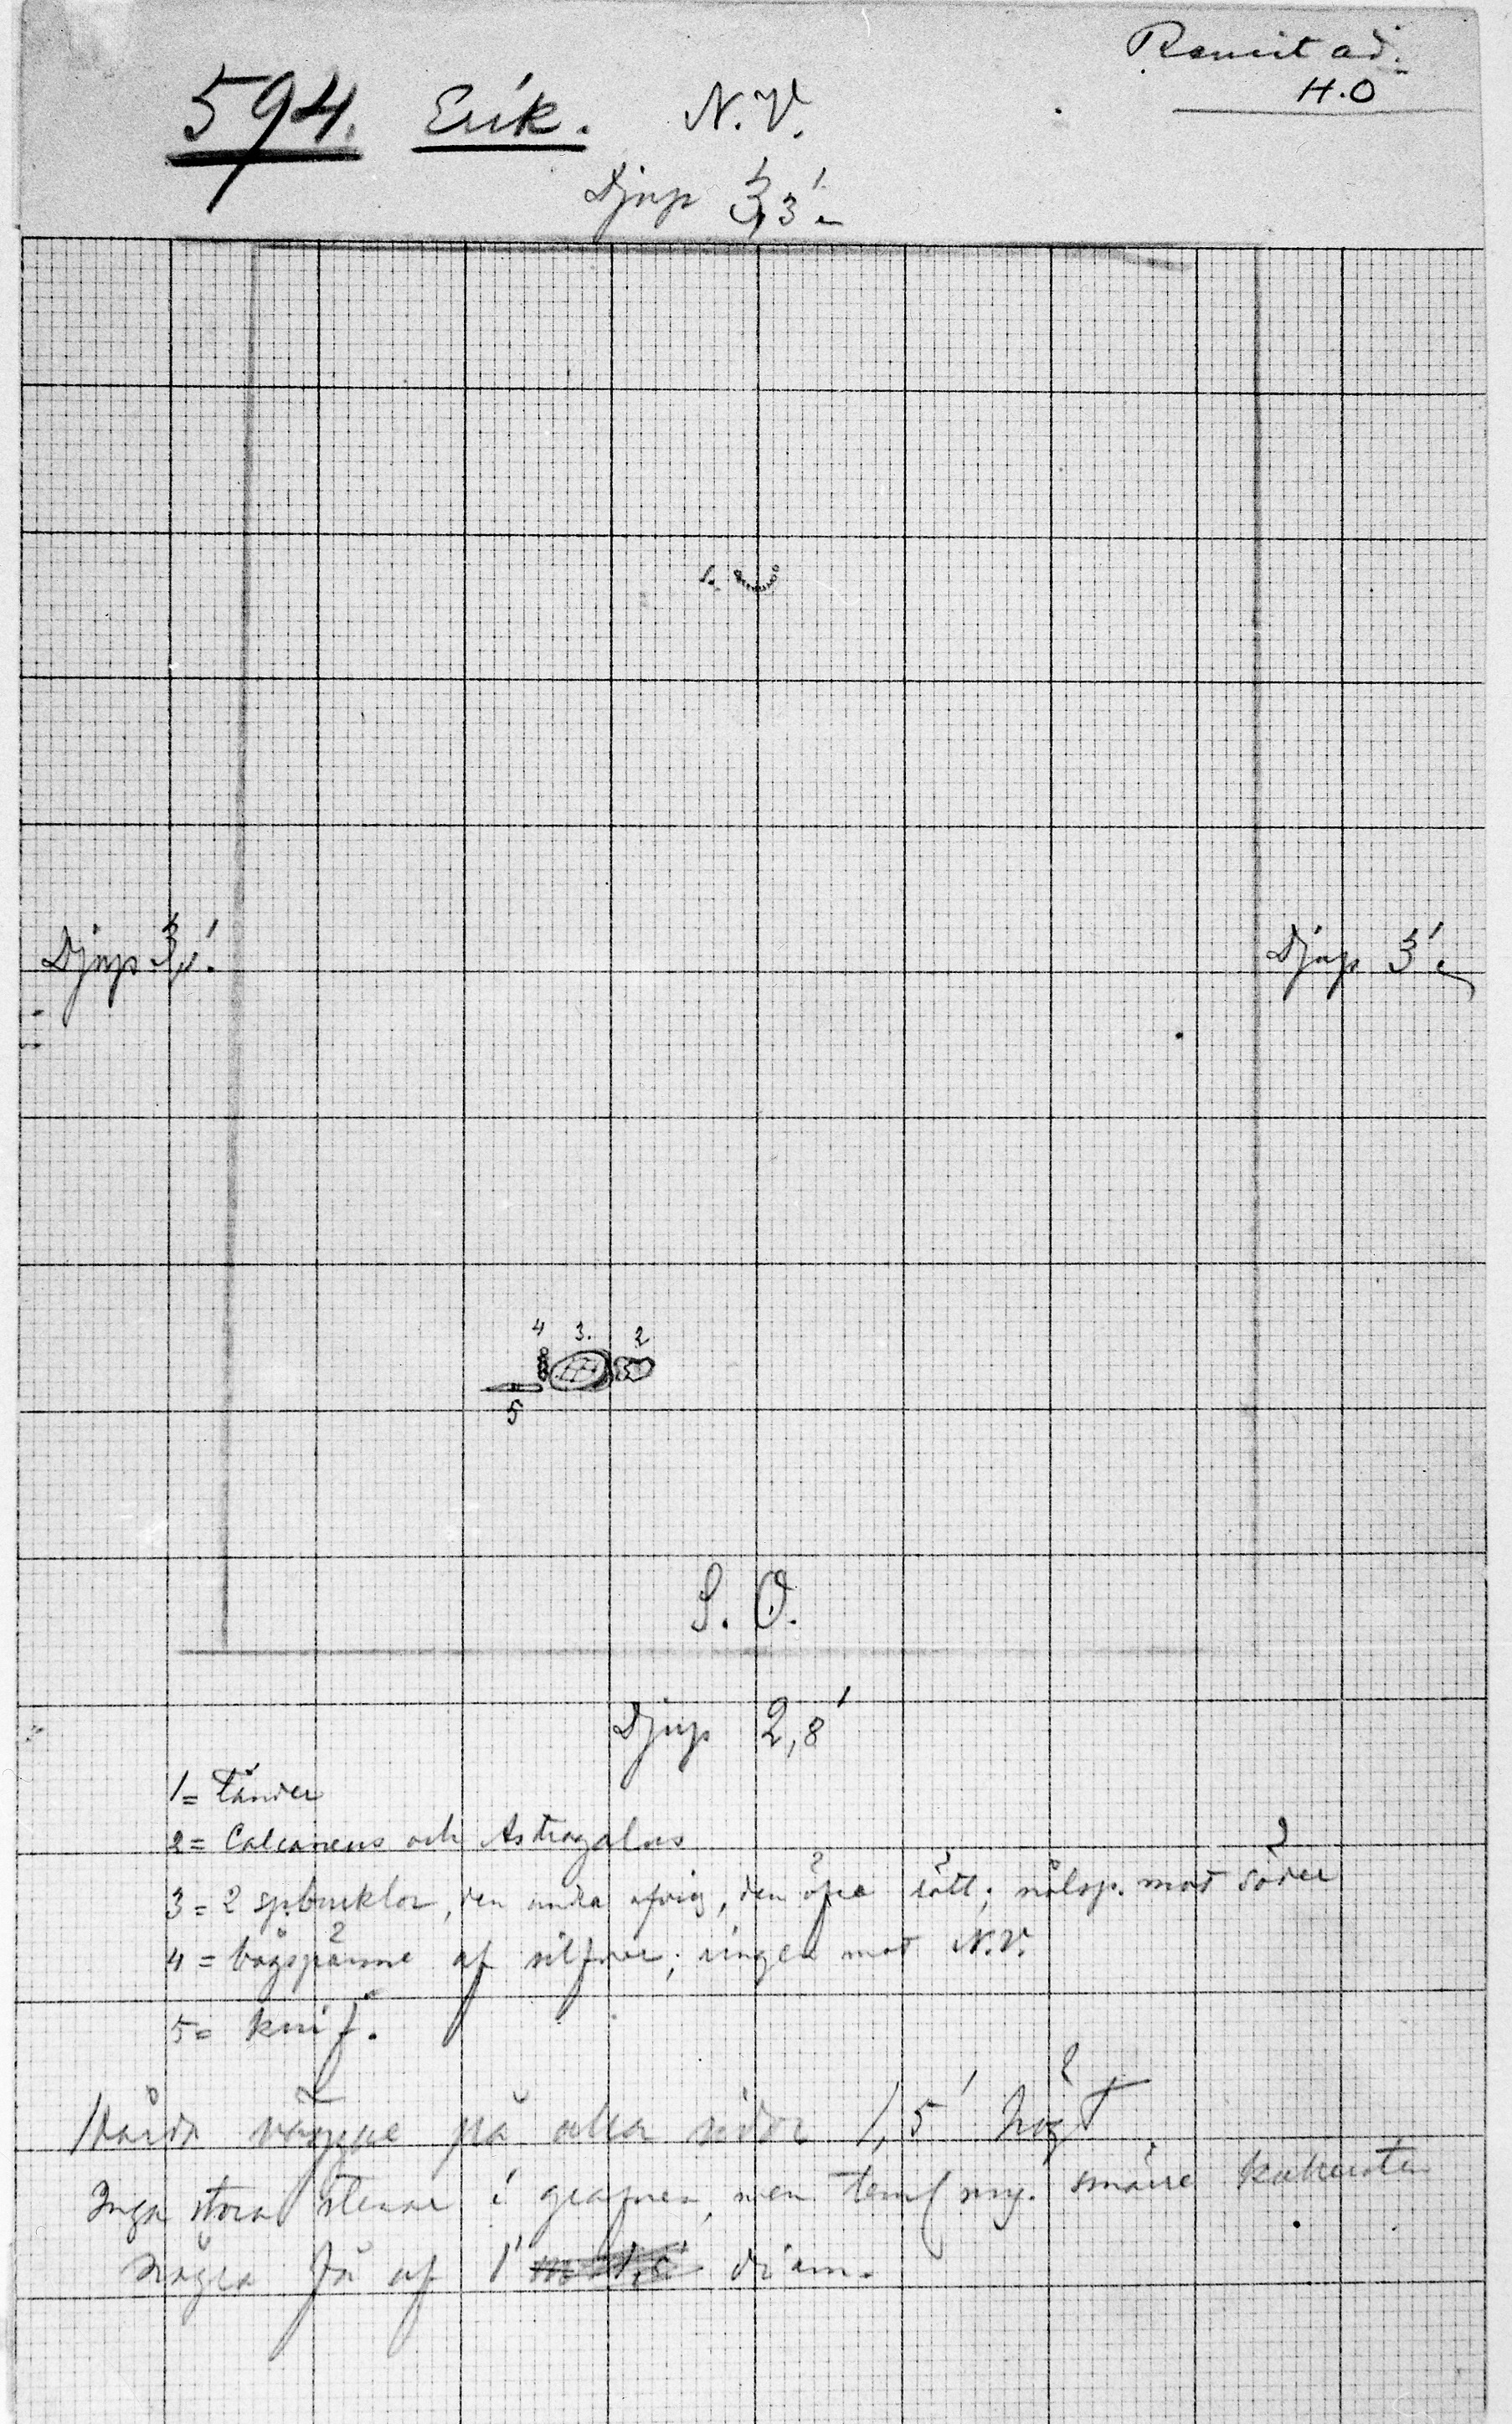 Renritad.
H.O
594. Erik. N.V.
Djup 3,3'
1.
Djup 3,1'.
Djup 3'
4 3. 2
5
S.O.
Djup 2,8'
1= Tänder
2= Calcaneus och Astragalus
3= 2 spbucklor, den undra afvig, den öfre rätt; nålsp. mot söder
4= bågspänne af silfver; ringen mot N.V.
5= knif.
Hårda väggar på alla sidor 1,5' högt
Inga stora stenar i grafven, men teml. my. smärre kullersten
några få af 1' diam.